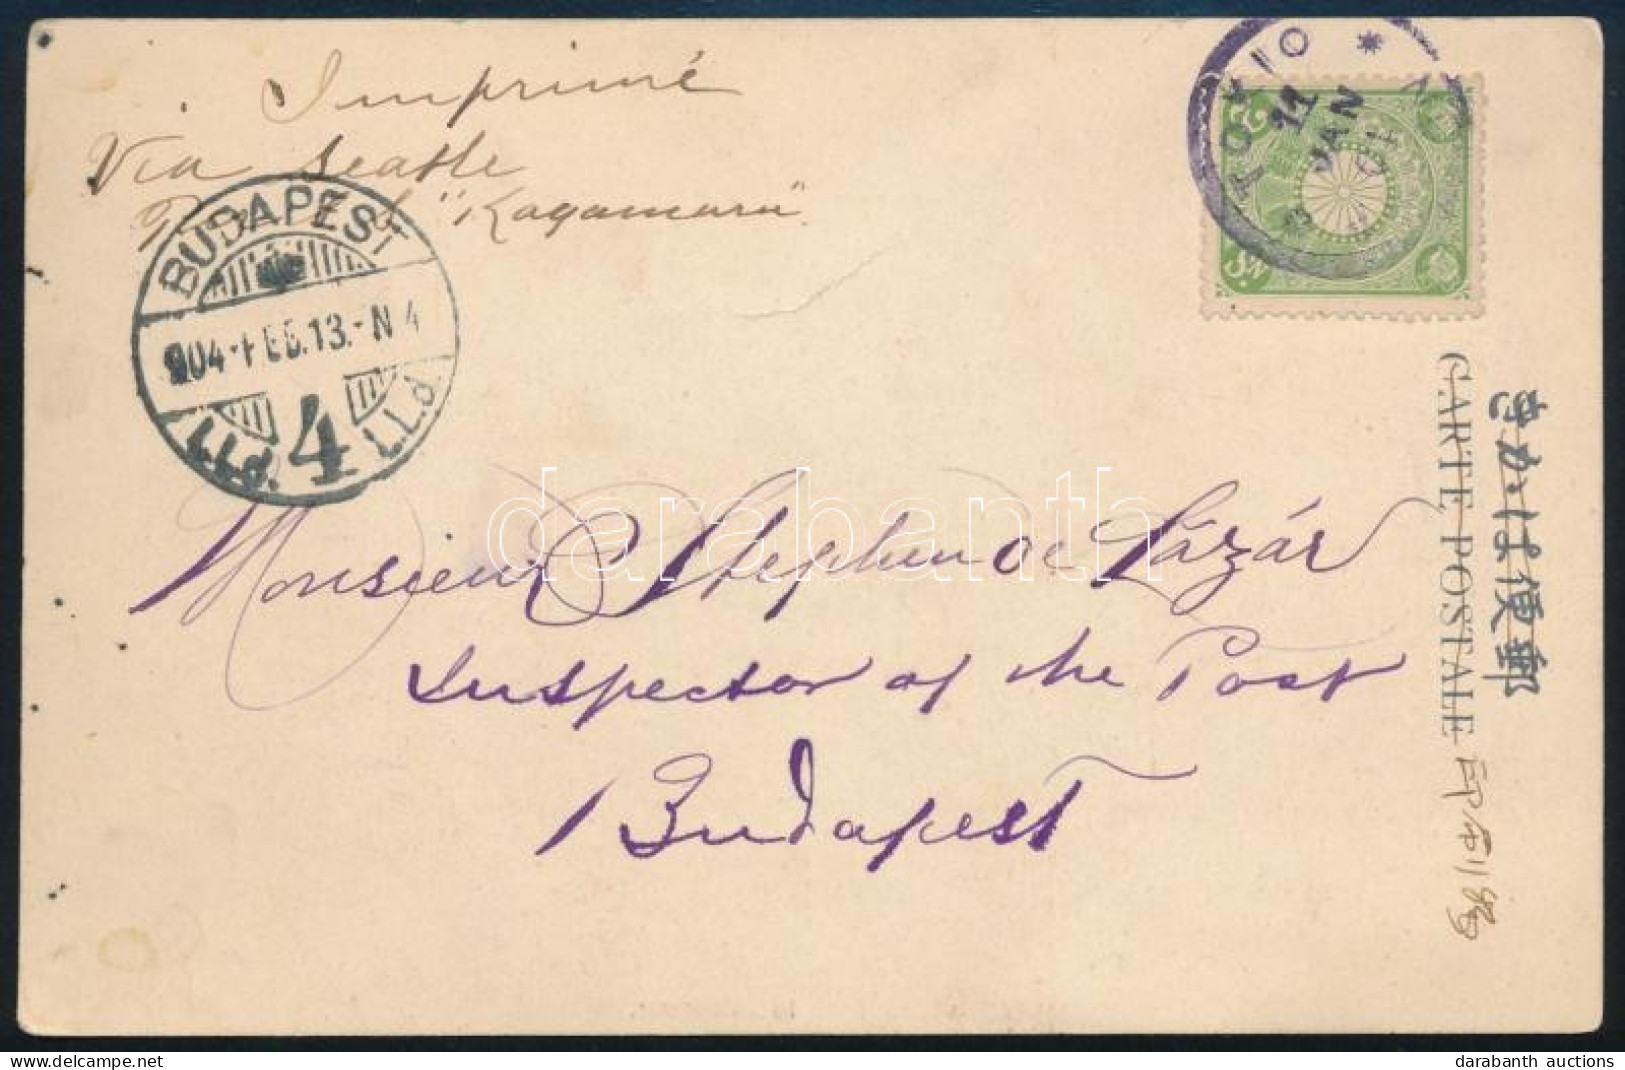 Imprimé
Via Seattle
"Kagamaru"
TOKIO
11
JAN
04
2
BUDAPEST
904-FEB.13.-N 4
4
Monsieur Stephen de Lázár
Inspector of the Post
Budapest
きかは便郵
CARTE POSTALE
印刷物
darabanth
darabanth auctions